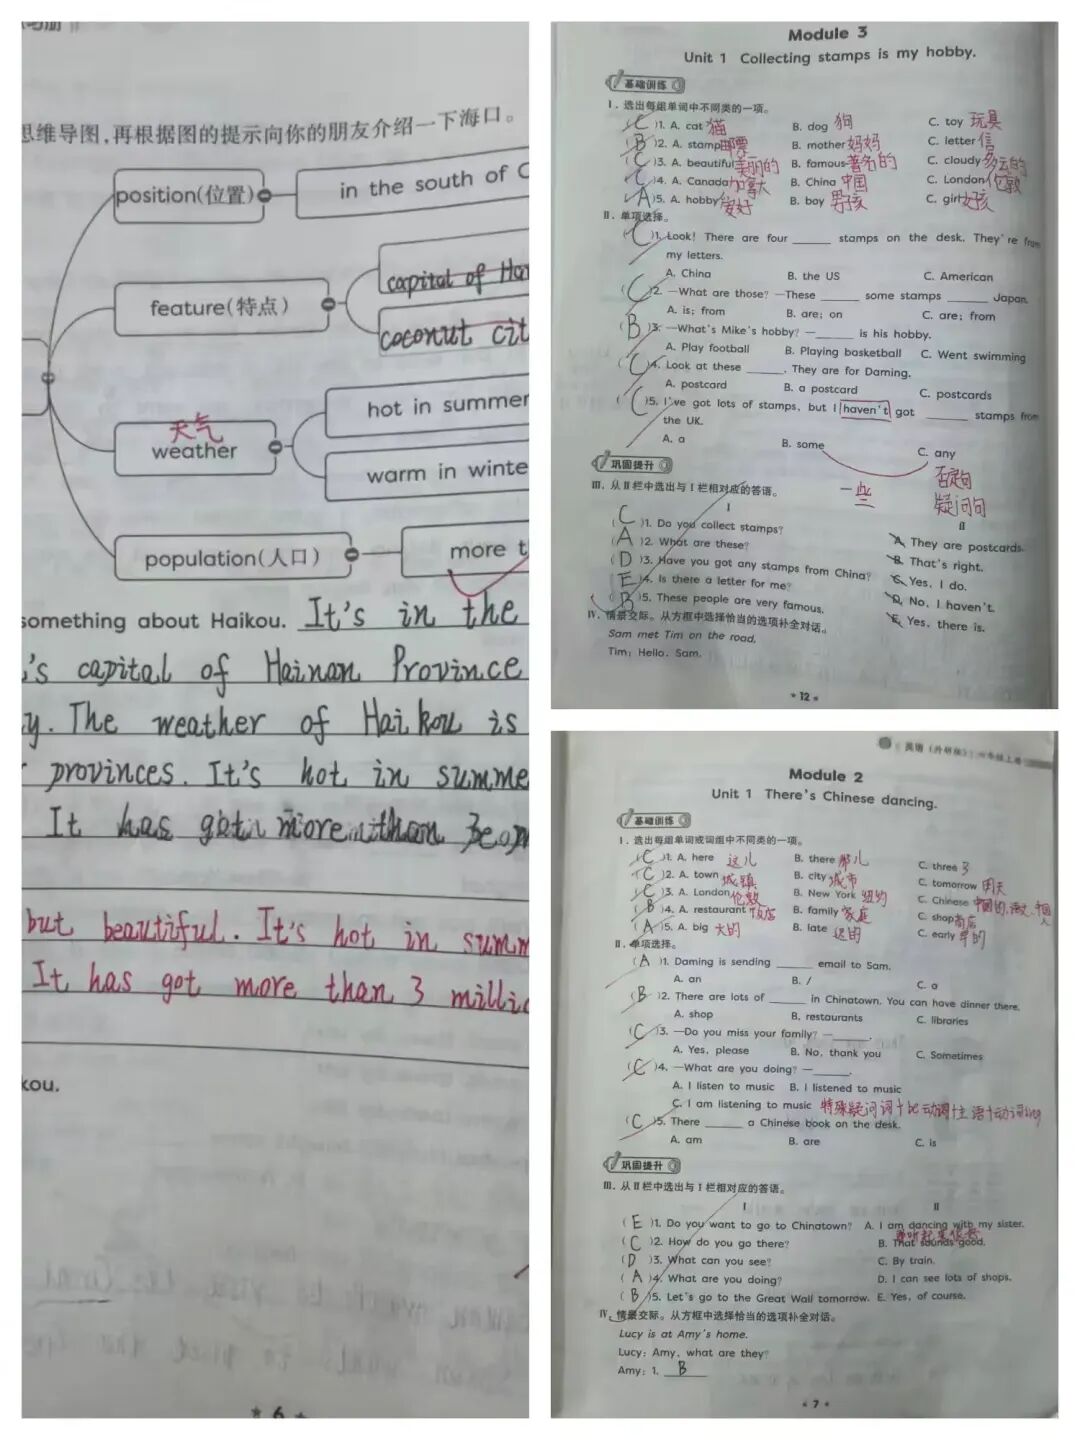 思维导图,再根据图的提示向你的朋友介绍一下海口。
position(位置)
in the south of C
feature(特点)
capital of Ha
coconut cit
天气
weather
hot in summer
warm in winte
population(人口)
more t
something about Haikou. It's in the
's capital of Hainan Province
y. The weather of Haikou is
provinces. It's hot in summe
It has got more than
but beautiful. It's hot in summ
It has got more than 3 millio
kou.
* 6 *
Module 3
Unit 1 Collecting stamps is my hobby.
基础训练
I. 选出每组单词中不同类的一项。
( C )1. A. cat 猫 B. dog 狗 C. toy 玩具
( B )2. A. stamp邮票 B. mother 妈妈 C. letter 信
( C )3. A. beautiful美丽的 B. famous著名的 C. cloudy多云的
( C )4. A. Canada加拿大 B. China 中国 C. London伦敦
( A )5. A. hobby爱好 B. boy 男孩 C. girl女孩
II. 单项选择。
( C )1. Look! There are four ______ stamps on the desk. They're from
my letters.
A. China B. the US C. American
( C )2. —What are those? —These ______ some stamps ______ Japan.
A. is; from B. are; on C. are; from
( B )3. —What's Mike's hobby? —______ is his hobby.
A. Play football B. Playing basketball C. Went swimming
( C )4. Look at these ______. They are for Daming.
A. postcard B. a postcard C. postcards
( C )5. I've got lots of stamps, but I haven't got ______ stamps from
the UK.
A. a B. some C. any
一些 否定句
疑问句
巩固提升
III. 从II栏中选出与I栏相对应的答语。
I II
( C )1. Do you collect stamps? A. They are postcards.
( A )2. What are these? B. That's right.
( D )3. Have you got any stamps from China? C. Yes, I do.
( E )4. Is there a letter for me? D. No, I haven't.
( B )5. These people are very famous. E. Yes, there is.
IV. 情景交际。从方框中选择恰当的选项补全对话。
Sam met Tim on the road.
Tim: Hello, Sam.
* 12 *
英语(外研版)六年级上册
Module 2
Unit 1 There's Chinese dancing.
基础训练
I. 选出每组单词或词组中不同类的一项。
( C )1. A. here 这儿 B. there 那儿 C. three 3
( C )2. A. town 城镇 B. city 城市 C. tomorrow 明天
( C )3. A. London 伦敦 B. New York 纽约 C. Chinese 中国的,语文,中国人
( B )4. A. restaurant 饭店 B. family 家庭 C. shop商店
( A )5. A. big 大的 B. late 迟的 C. early 早的
II. 单项选择。
( A )1. Daming is sending ______ email to Sam.
A. an B. / C. a
( B )2. There are lots of ______ in Chinatown. You can have dinner there.
A. shop B. restaurants C. libraries
( C )3. —Do you miss your family? —______.
A. Yes, please B. No, thank you C. Sometimes
( C )4. —What are you doing? —______.
A. I listen to music B. I listened to music
C. I am listening to music 特殊疑问词+be动词+主语+动词ing
( C )5. There ______ a Chinese book on the desk.
A. am B. are C. is
巩固提升
III. 从II栏中选出与I栏相对应的答语。
I II
( E )1. Do you want to go to Chinatown? A. I am dancing with my sister.
( C )2. How do you go there? B. That sounds good.
( D )3. What can you see? C. By train.
( A )4. What are you doing? D. I can see lots of shops.
( B )5. Let's go to the Great Wall tomorrow. E. Yes, of course.
IV. 情景交际。从方框中选择恰当的选项补全对话。
Lucy is at Amy's home.
Lucy: Amy, what are they?
Amy: 1. B
* 7 *